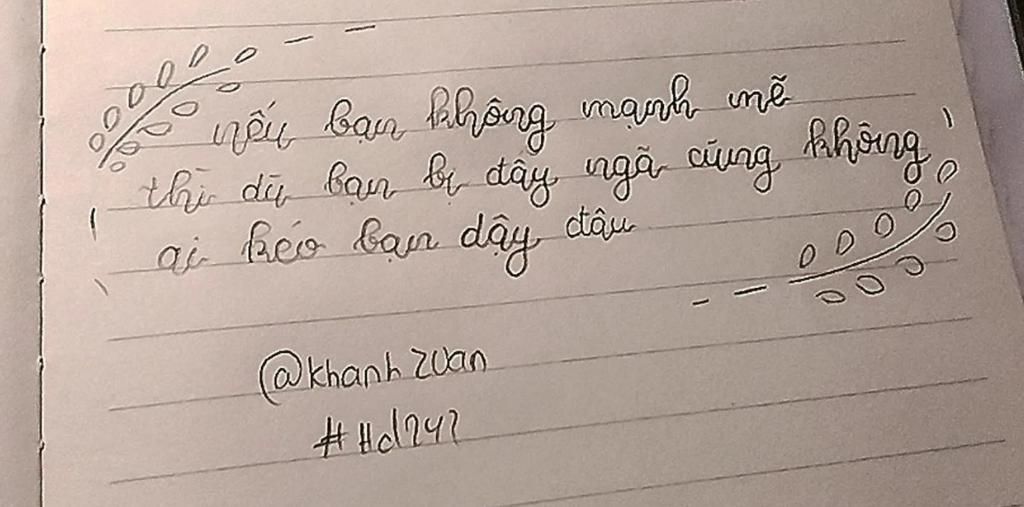 nếu bạn không mạnh mẽ
thì dù bạn bị đây ngã cũng không
ai kéo bạn dậy đâu
@khanhzuan